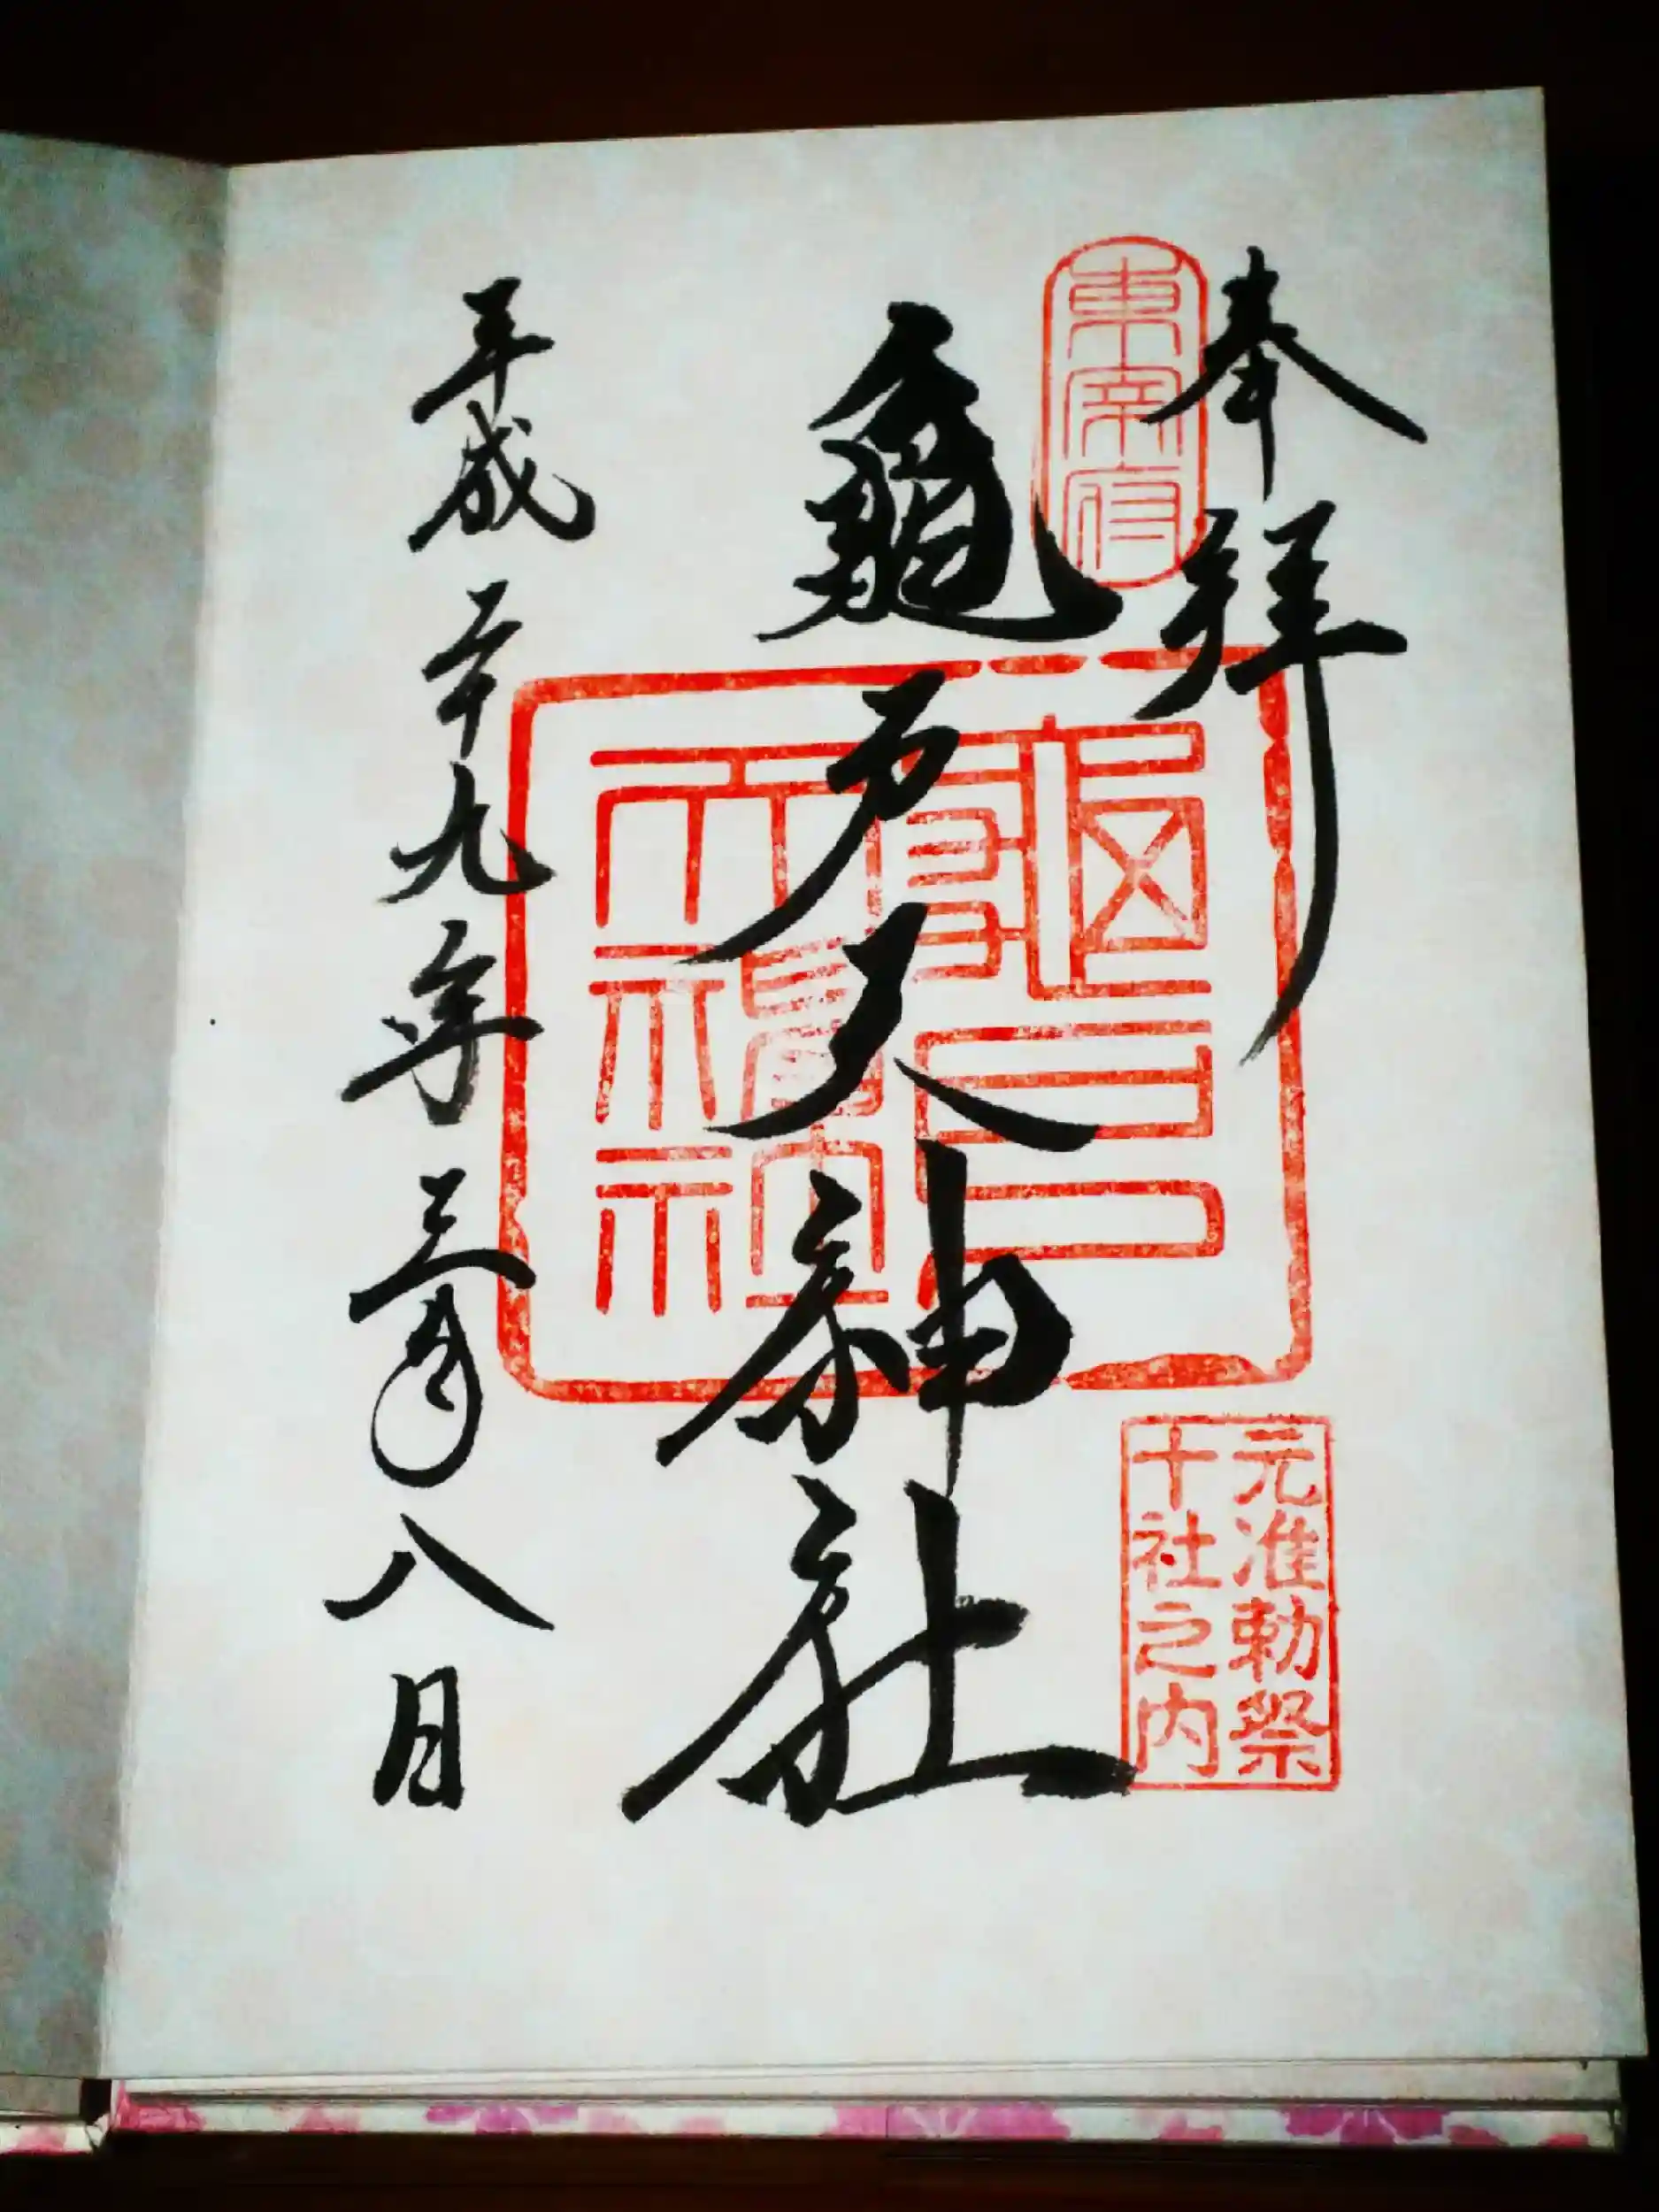 奉拝
東宰府
龜戸天神社
龜戸
天神社
元准勅祭
十社之内
平成二十九年三月八日